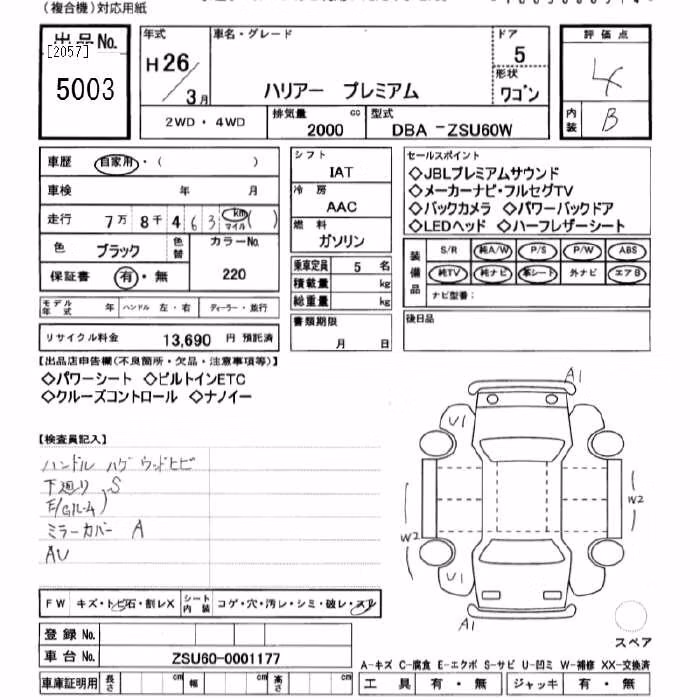 (複合機)対応用紙
出品No.
[2057]
5003
年式
H26/3月
車名・グレード
ハリアー プレミアム
ドア
5
形状
ワゴン
評価点
4
内装
B
2WD・4WD
排気量
2000
cc
型式
DBA -ZSU60W
車歴
自家用・( )
車検 年 月
走行 7万8千463 km マイル ( )
色
ブラック
色替
カラーNo.
220
保証書 有・無
モデル年式 年 ハンドル 左・右 ディーラー・並行
リサイクル料金 13,690 円 預託済
シフト
IAT
冷房
AAC
燃料
ガソリン
乗車定員 5 名
積載量 kg
総重量 kg
書類期限
月 日
セールスポイント
◇JBLプレミアムサウンド
◇メーカーナビ・フルセグTV
◇バックカメラ ◇パワーバックドア
◇LEDヘッド ◇ハーフレザーシート
装備品
S/R 純A/W P/S P/W ABS
純TV 純ナビ 革シート 外ナビ エアB
ナビ型番:
後日品
【出品店申告欄(不良箇所・欠品・注意事項等)】
◇パワーシート ◇ビルトインETC
◇クルーズコントロール ◇ナノイー
【検査員記入】
ハンドル ハゲ ウッドヒビ
下廻り S
E/Gルーム
ミラーカバー A
AU
A1
U1
W2
W2
U1
A1
スペア
FW キズ・トビ石・割レX シート内装 コゲ・穴・汚レ・シミ・破レ・スレ
登録No.
車台No. ZSU60-0001177
A-キズ C-腐食 E-エクボ S-サビ U-凹ミ W-補修 XX-交換済
車庫証明用 長さ cm 幅 cm 高さ cm
工具 有・無 ジャッキ 有・無